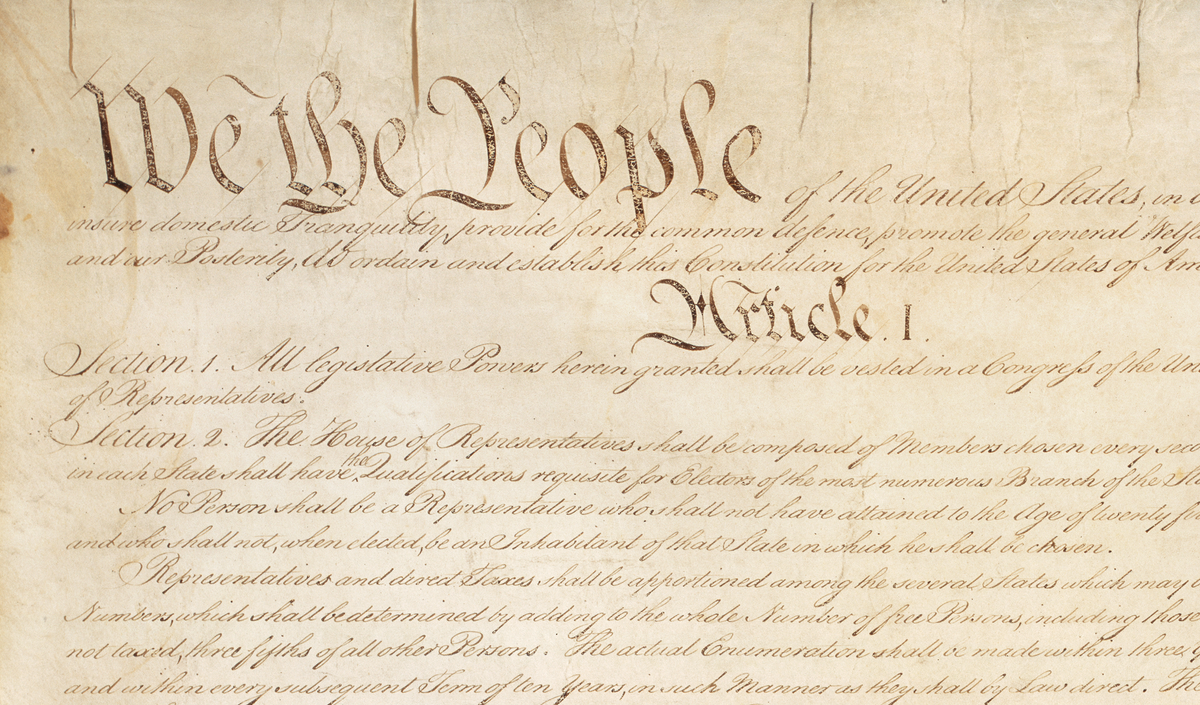 We the People of the United States, in
insure domestic Tranquility, provide for the common defence, promote the general Welfa
and our Posterity, do ordain and establish this Constitution for the United States of Am
Article. I.
Section. 1. All legislative Powers herein granted shall be vested in a Congress of the Uni
of Representatives.
Section. 2. The House of Representatives shall be composed of Members chosen every sec
in each State shall have the Qualifications requisite for Electors of the most numerous Branch of the Sta
No Person shall be a Representative who shall not have attained to the Age of twenty fi
and who shall not, when elected, be an Inhabitant of that State in which he shall be chosen.
Representatives and direct Taxes shall be apportioned among the several States which may
Numbers, which shall be determined by adding to the whole Number of free Persons, including those
not taxed, three fifths of all other Persons. The actual Enumeration shall be made within three
and within every subsequent Term of ten Years, in such Manner as they shall by Law direct. The